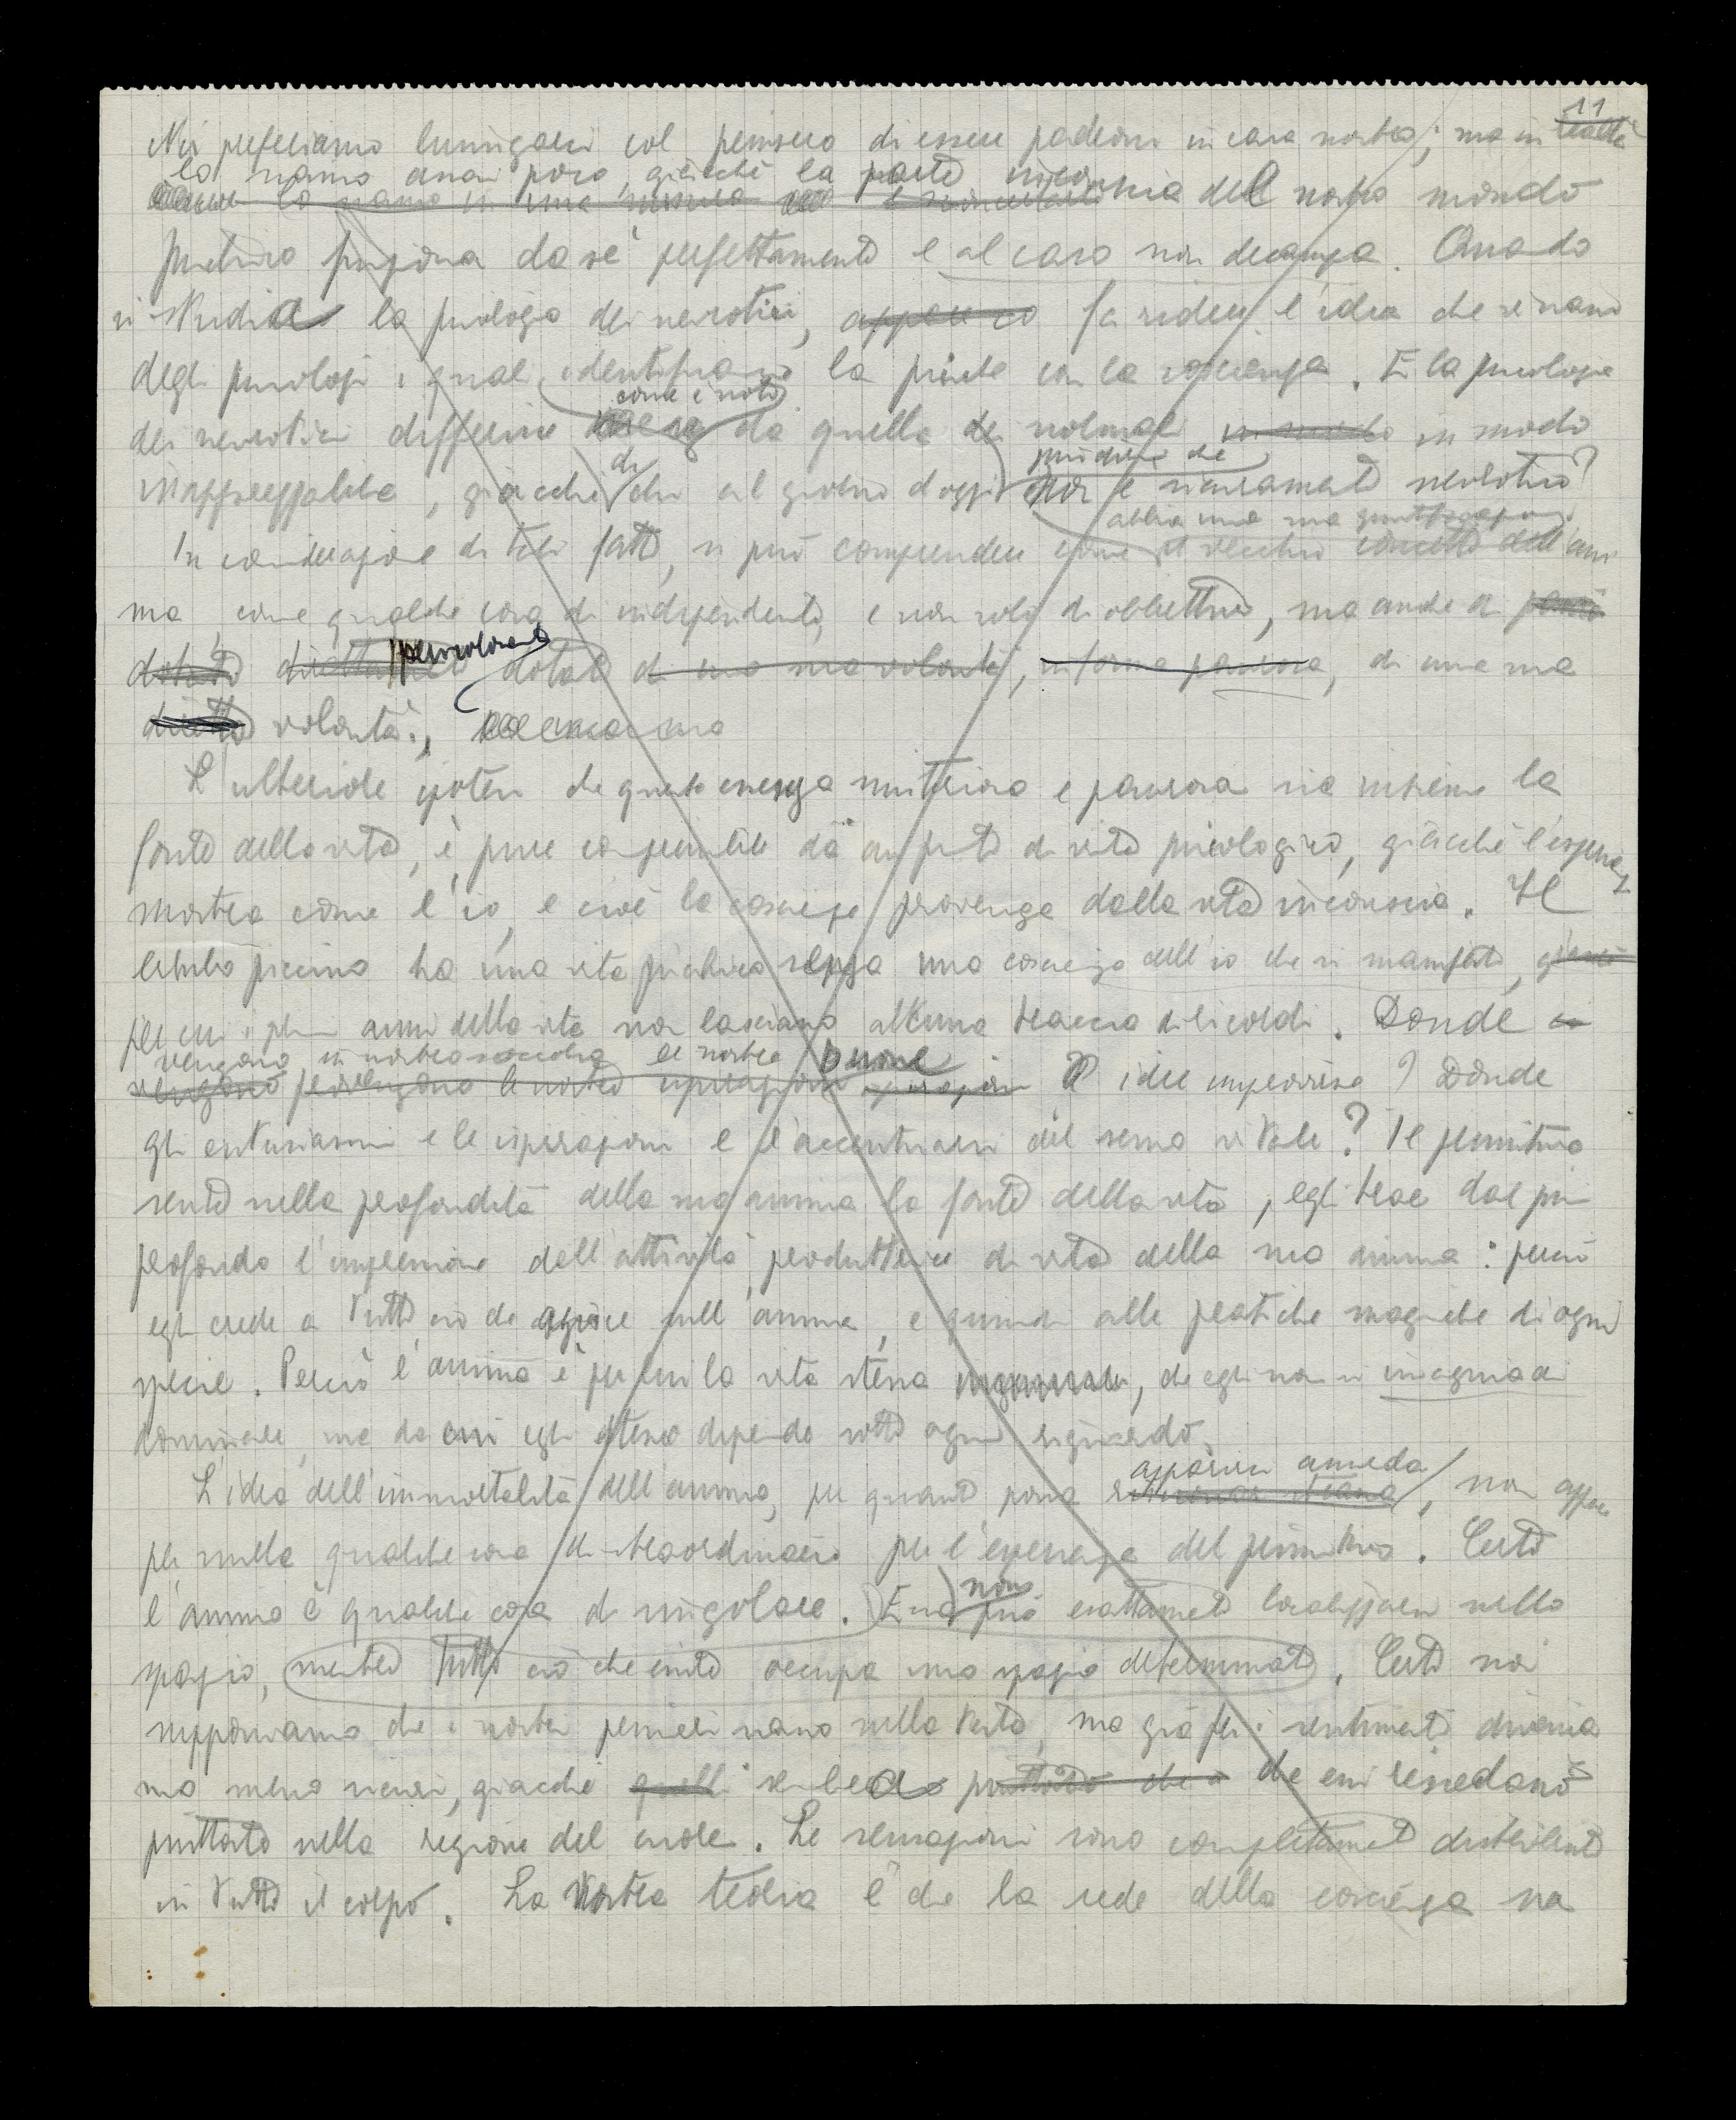 11
Noi preferiamo lusingarci col pensiero di essere padroni in casa nostra; ma in realtà
lo siamo assai poco, giacché la parte inconscia del nostro mondo
lo siamo in una misura
psichico funziona da sé perfettamente e al caso non decampa. Quando
si studia la psicologia dei nevrotici, fa ridere l'idea che vi siano
degli psicologi i quali identificano la psiche con la coscienza. E la psicologia
come è noto
dei nevrotici differisce da quella dei normali in modo
di
può dirsi che
inapprezzabile, giacché chi al giorno d'oggi non è sicuramente nevrotico?
abbia una sua giustificazione
In considerazione di tali fatti, si può comprendere come il vecchio concetto dell'ani
ma, come qualche cosa di indipendente, e non solo di obbiettivo, ma anche di
pericolosamente
dotato di una sua volontà, di una sua
volontà,
L'ulteriore ipotesi che questa energia misteriosa e paurosa sia insieme la
fonte della vita, è pure comprensibile da un punto di vista psicologico, giacché l'esperienza
mostra come l'io, e cioè la coscienza provenga dalla vita inconscia. Il
bimbo piccino ha una vita psichica senza una coscienza dell'io che si manifesti,
per cui i primi anni della vita non lasciano alcuna traccia di ricordi. Donde
vengono in nostro soccorso le nostre buone
vengono provengono le nostre ispirazioni idee improvvise? Donde
gli entusiasmi e le ispirazioni e l'accentuarsi del senso vitale? Il primitivo
sente nella profondità della sua anima la fonte della vita, egli trae dal più
profondo l'impressione dell'attività produttrice di vita della sua anima: perciò
egli crede a tutto ciò che agisce sull'anima, e quindi alle pratiche magiche di ogni
specie. Perciò l'anima è per lui la vita stessa, che egli non si immagina di
dominare, ma da cui egli stesso dipende sotto ogni riguardo.
apparirci assurda
L'idea dell'immortalità dell'anima, per quanto possa, non appare
per nulla qualche cosa di straordinario per l'esperienza del primitivo. Certo
non
l'anima è qualche cosa di singolare. Essa può esattamente localizzarsi nello
spazio, mentre tutto ciò che esiste occupa uno spazio determinato. Certo noi
supponiamo che i nostri pensieri siano nella testa, ma già per i sentimenti diveniamo
meno sicuri, giacché quelli sembra piuttosto che essi risiedano
piuttosto nella regione del cuore. Le sensazioni sono completamente distribuite
in tutto il corpo. La nostra teoria è che la sede della coscienza sia